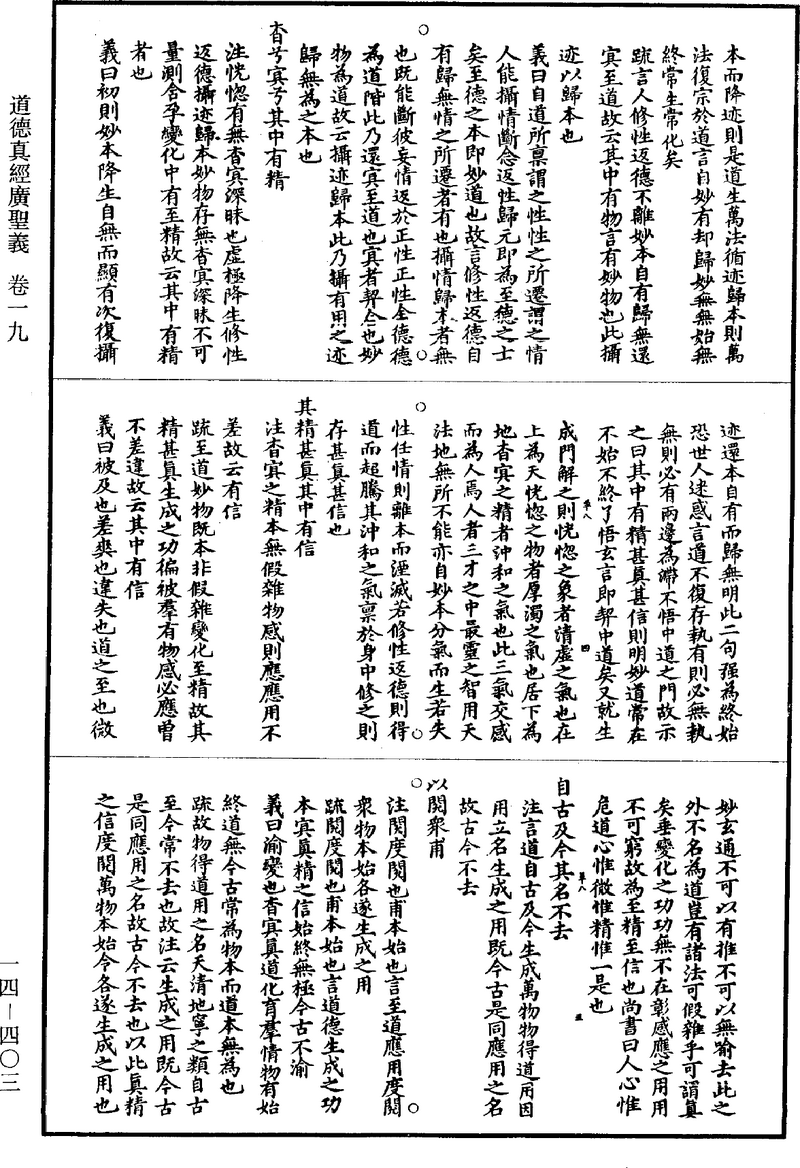 道德真經廣聖義　卷一九
本而降迹則是道生萬法循迹歸本則萬
法復宗於道言自妙有却歸妙無無始無
終常生常化矣
疏言人修性返德不離妙本自有歸無還
㝠至道故云其中有物言有妙物也此攝
迹以歸本也
義曰自道所禀謂之性性之所遷謂之情
人能攝情斷念返性歸元即為至德之士
矣至德之本即妙道也故言修性返德自
有歸無情之所遷者有也攝情歸本者無
也既能斷彼妄情返於正性正性全德德
為道階此乃還㝠至道也㝠者契合也妙
物為道故云攝迹歸本此乃攝有用之迹
歸無為之本也
杳兮㝠兮其中有精
注恍惚有無杳㝠深昧也虛極降生修性
返德攝迹歸本妙物存無杳㝠深昧不可
量測含孕變化中有至精故云其中有精
者也
義曰初則妙本降生自無而顯有次復攝
迹還本自有而歸無明此二句强為終始
恐世人迷惑言道不復存執有則必無執
無則必有兩邊為滯不悟中道之門故示
之曰其中有精甚真甚信則明妙道常在
不始不終了悟玄言即契中道矣又就生
成門解之則恍惚之象者清虛之氣也在
上為天恍惚之物者厚濁之氣也居下為
地杳㝠之精者沖和之氣也此三氣交感
而為人焉人者三才之中最靈之智用天
法地無所不能亦自妙本分氣而生若失
性任情則離本而湮滅若修性返德則得
道而超騰其沖和之氣禀於身中修之則
存甚真甚信也
其精甚真其中有信
注杳㝠之精本無假雜物感則應應用不
差故云有信
疏至道妙物既本非假雜變化至精故其
精甚真生成之功徧被羣有物感必應曾
不差違故云其中有信
義曰被及也差爽也違失也道之至也微
妙玄通不可以有推不可以無喻去此之
外不名為道豈有諸法可假雜乎可謂真
矣垂變化之功功無不在彰感應之用用
不可窮故為至精至信也尚書曰人心惟
危道心惟微惟精惟一是也
自古及今其名不去
注言道自古及今生成萬物物得道用因
用立名生成之用既今古是同應用之名
故古今不去
以閱衆甫
注閱度閱也甫本始也言至道應用度閱
衆物本始各遂生成之用
疏閱度閱也甫本始也言道德生成之功
本㝠真精之信始終無極今古不渝
義曰渝變也杳㝠真道化育羣情物有始
終道無今古常為物本而道本無為也
疏故物得道用之名天清地寧之類自古
至今常不去也故注云生成之用既今古
是同應用之名故古今不去也以此真精
之信度閱萬物本始令各遂生成之用也
一四－四〇三